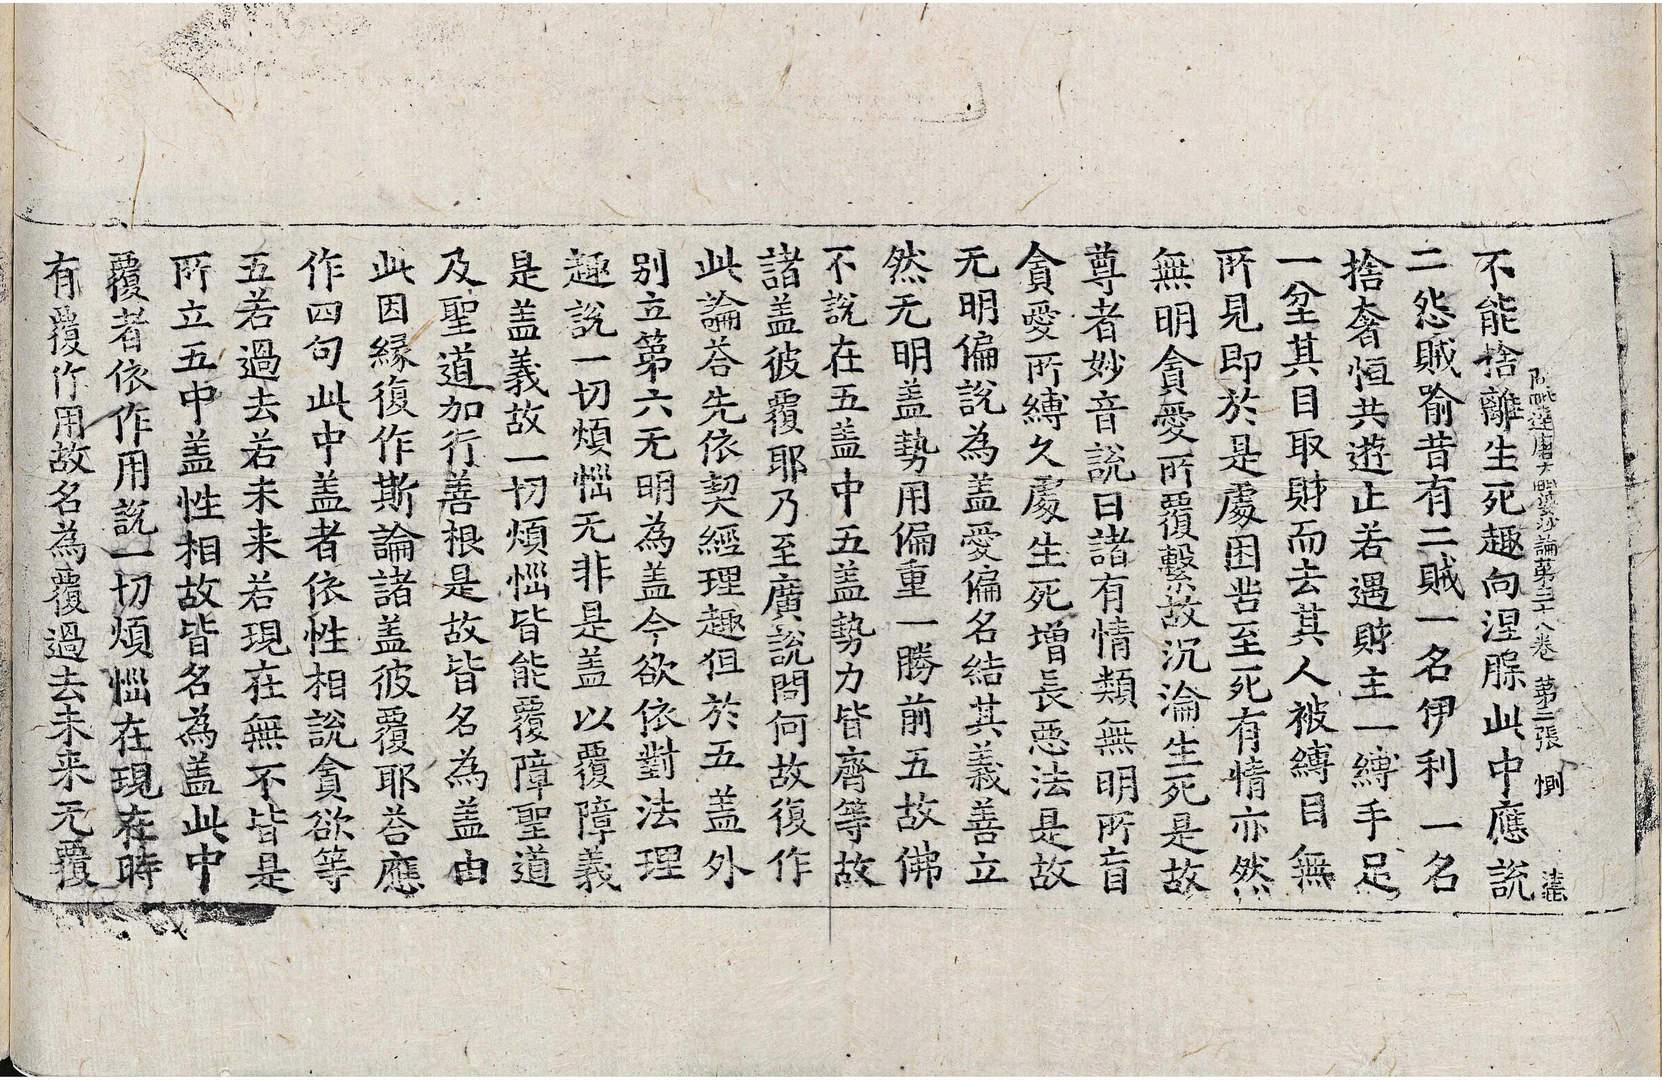 阿毗達磨大毗婆沙論第三十八卷 第二張 惻
不能捨離生死趣向涅槃此中應說
二怨賊喻昔有二賊一名伊利一名
捨奢恒共遊止若遇財主一縛手足
一坌其目取財而去其人被縛目無
所見即於是處困苦至死有情亦然
無明貪愛所覆繫故沉淪生死是故
尊者妙音說曰諸有情類無明所盲
貪愛所縛久處生死增長惡法是故
无明偏說為盖愛偏名結其義善立
然无明盖勢用偏重一勝前五故佛
不說在五盖中五盖勢力皆齊等故
諸盖彼覆耶乃至廣說問何故復作
此論荅先依契經理趣但於五盖外
別立第六无明為盖今欲依對法理
趣說一切煩惱无非是盖以覆障義
是盖義故一切煩惱皆能覆障聖道
及聖道加行善根是故皆名為盖由
此因緣復作斯論諸盖彼覆耶荅應
作四句此中盖者依性相說貪欲等
五若過去若未来若現在無不皆是
所立五中盖性相故皆名為盖此中
覆者依作用說一切煩惱在現在時
有覆作用故名為覆過去未来无覆